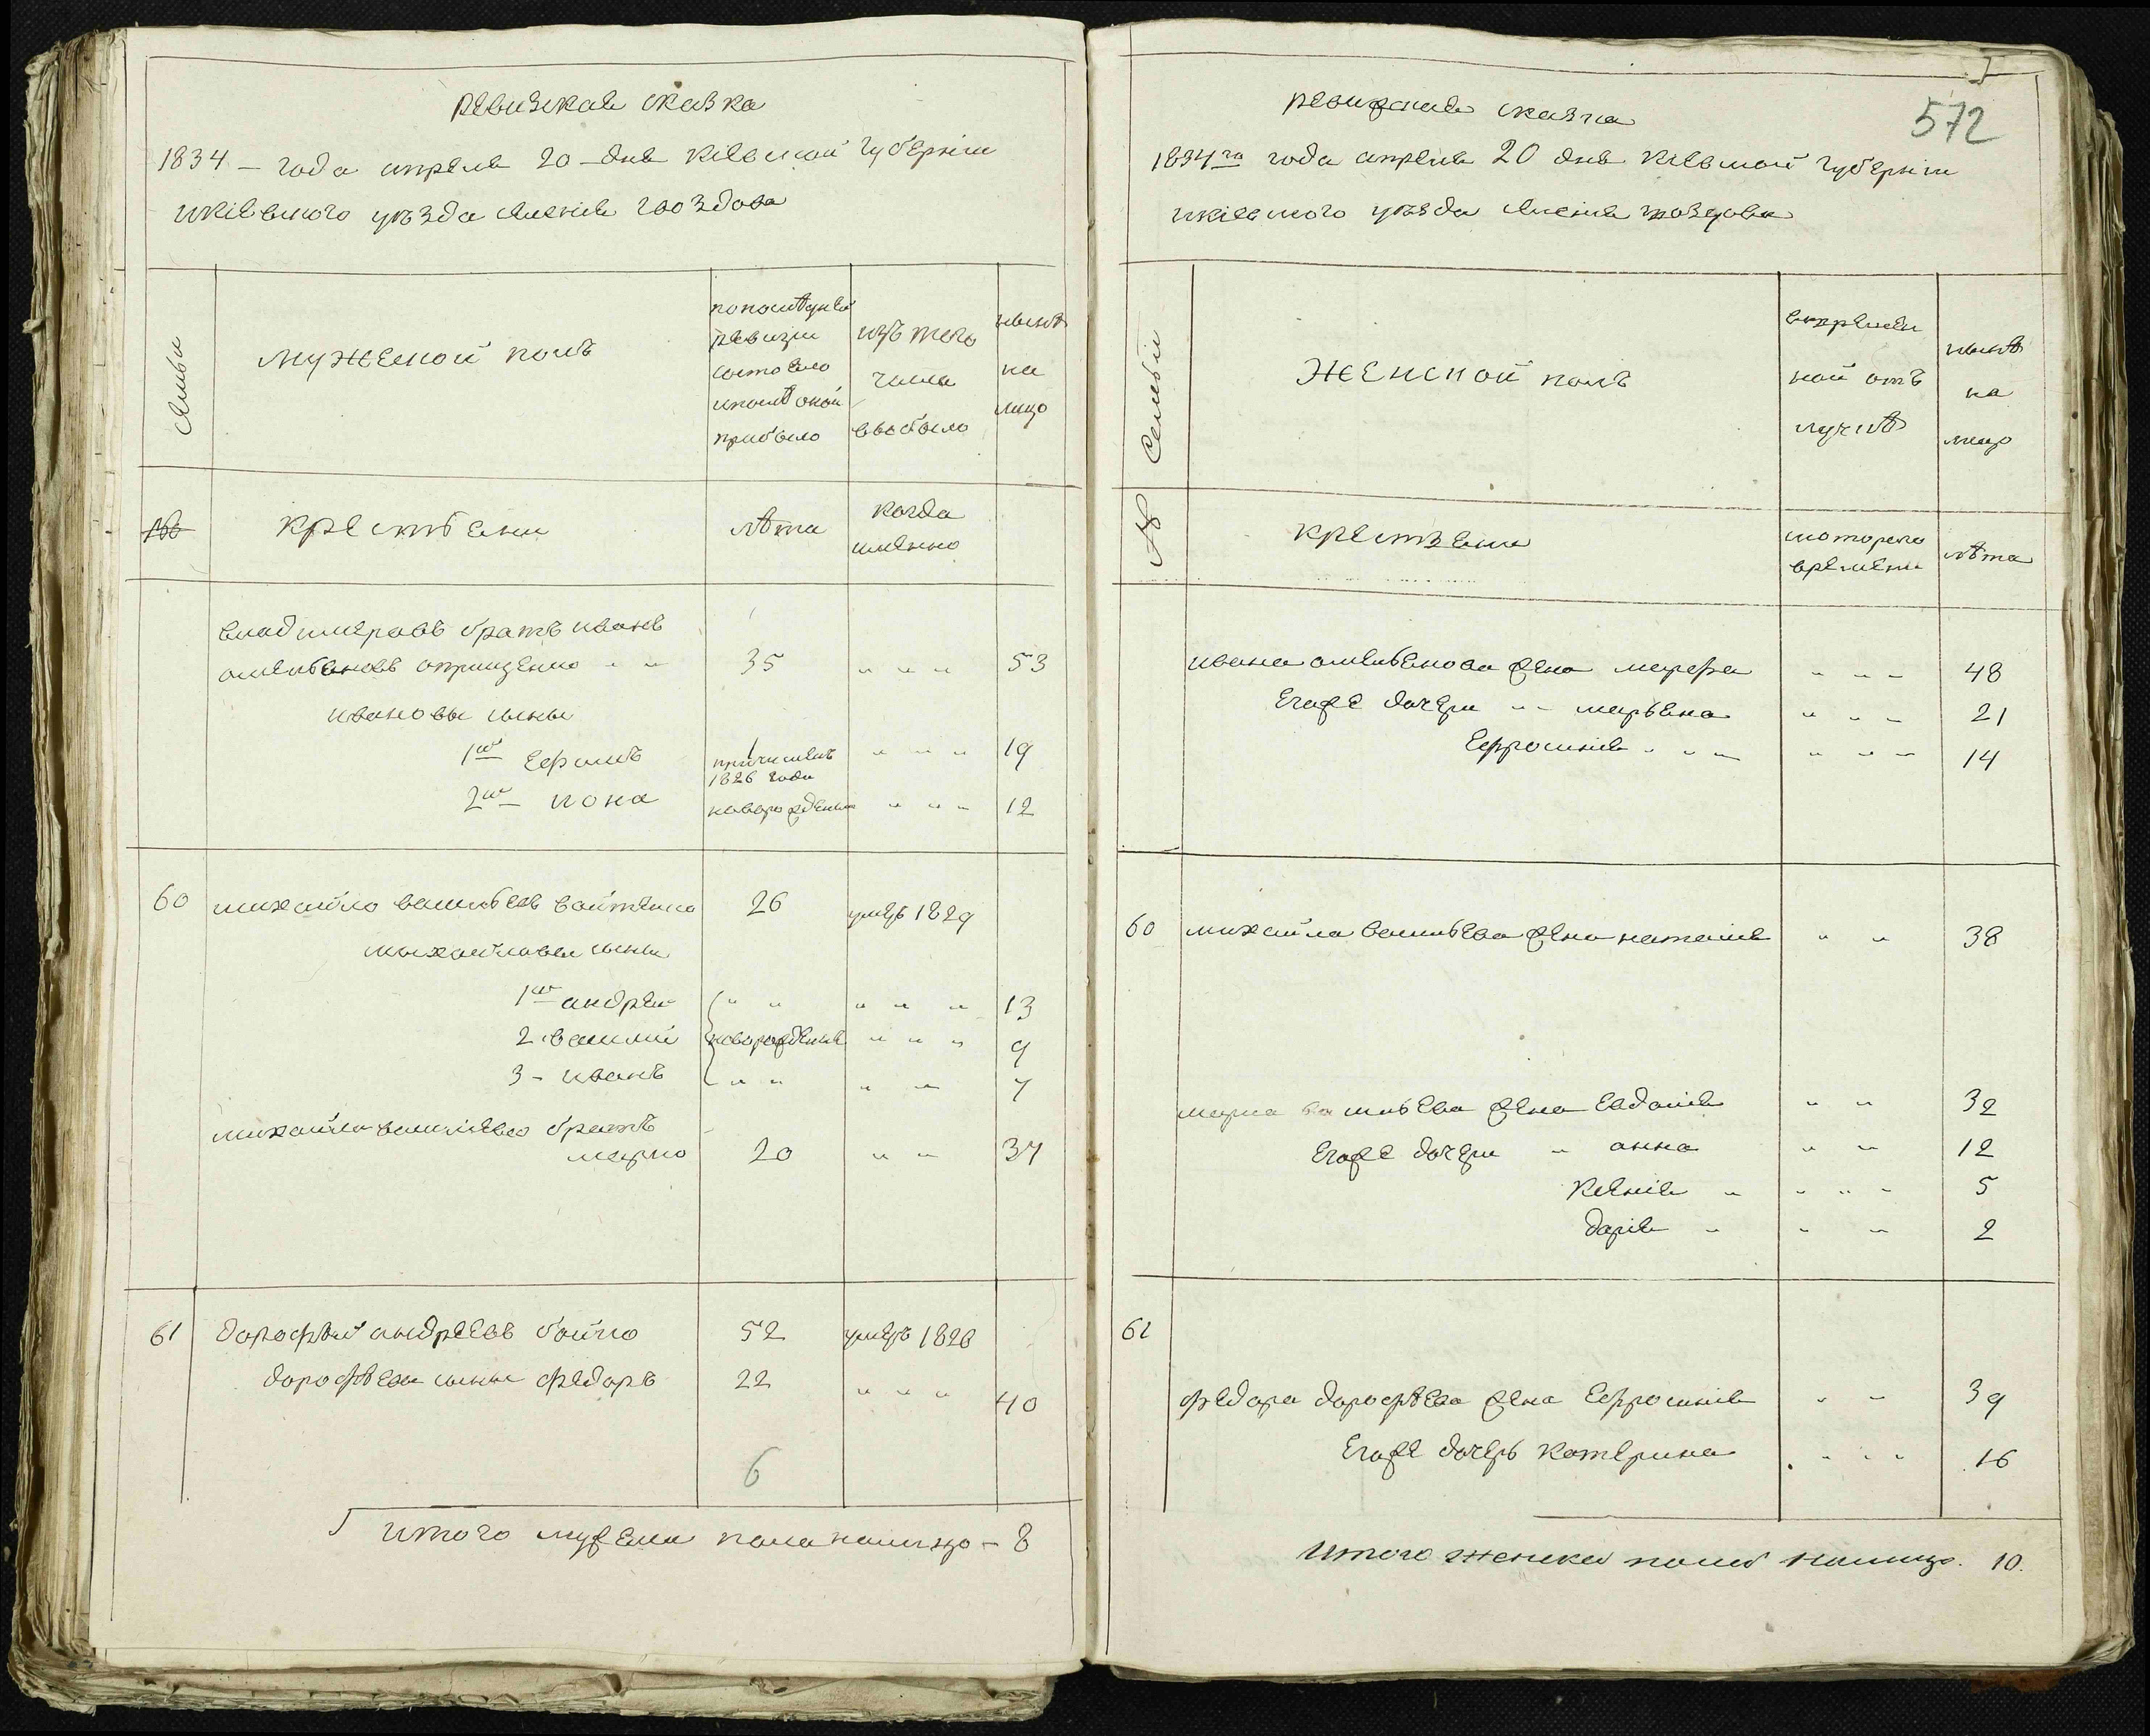 ревизская сказка
1834 – года апреля 20 – дня киевской губернiи
икiевского уѣзда селенiя гвоздова
Семьи
мужеской полъ
попоследней
ревизiи
состояло
ипослѣ оной
прибыло
изъ того
числа
выбыло
нынѣ
на
лицо
№
крестьяни
лѣта
когда
имянно
владимеровъ братъ иванъ
омельяновъ оприщенко " " 35 " " " 53
ивановы сыны
1й ефимъ причисленъ 1826 года " " " 19
2й иона новорожденны " " " 12
60 михайло васильевъ войтенко 26 умеръ 1829
михайловы сыны
1й андрей " " " " " 13
2 василий новорожденые " " " 9
3 – иванъ " " " " 7
михайла василiева братъ
марко 20 " " 37
61 дорофѣй андреевъ бойко 52 умеръ 1826
дорофѣевы сыны федоръ 22 " " " 40
6
итого мужеска пола налицо – 8
572
ревизская сказка
1834го года апреля 20 дня киевской губернiи
икiевского уѣзда селенiя гвоздова
№ Семьи
Женской полъ
вовремен
ной отъ
лучкѣ
нынѣ
на
лицо
крестьяни
скоторого
времени
лѣта
ивана омельянова жена марфа " " " 48
Егоже дочери " " марьяна " " " 21
Ефросинiя " " " " " " 14
60 михайла васильева жена наталiя " " 38
марка васильева жена Евдокiя " " 32
Егоже дочери " анна " " 12
Ксенiя " " " " 5
дарiя " " " 2
61
федора дорофѣева жена Ефросинiя " " 39
Егоже дочерь катерина " " " 16
Итого женска пола налицо. 10.